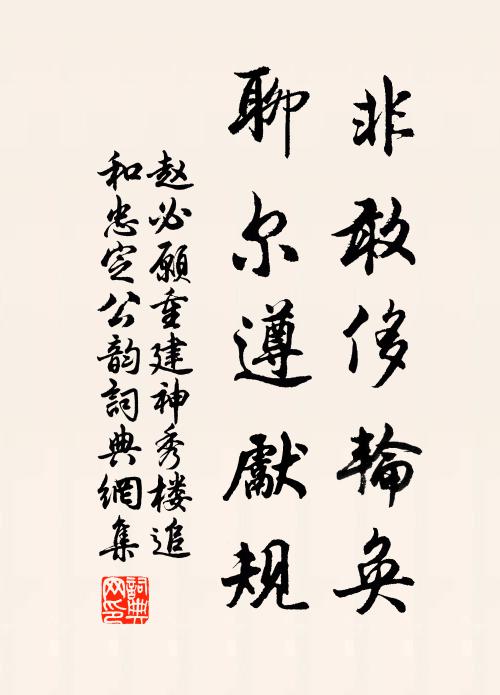 非敢侈輪奐
聊尔遵獻規
赵必願重建神秀楼追
和忠定公韵詞典網集
詞典網印